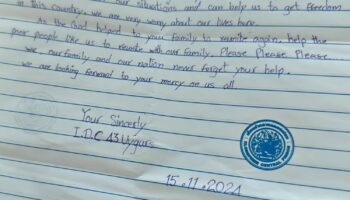 our situations and can help us to get freedom
in this country. we are very worry about our lives here.
As the God helped to your family to reunite again, help the
poor people like us to reunite with our family. Please Please Please
we, our family and our nation never forget your help.
we are looking forward to your mercy on us all
Your Sincerly
I.D.C 43 Uygurs
15.11.2024